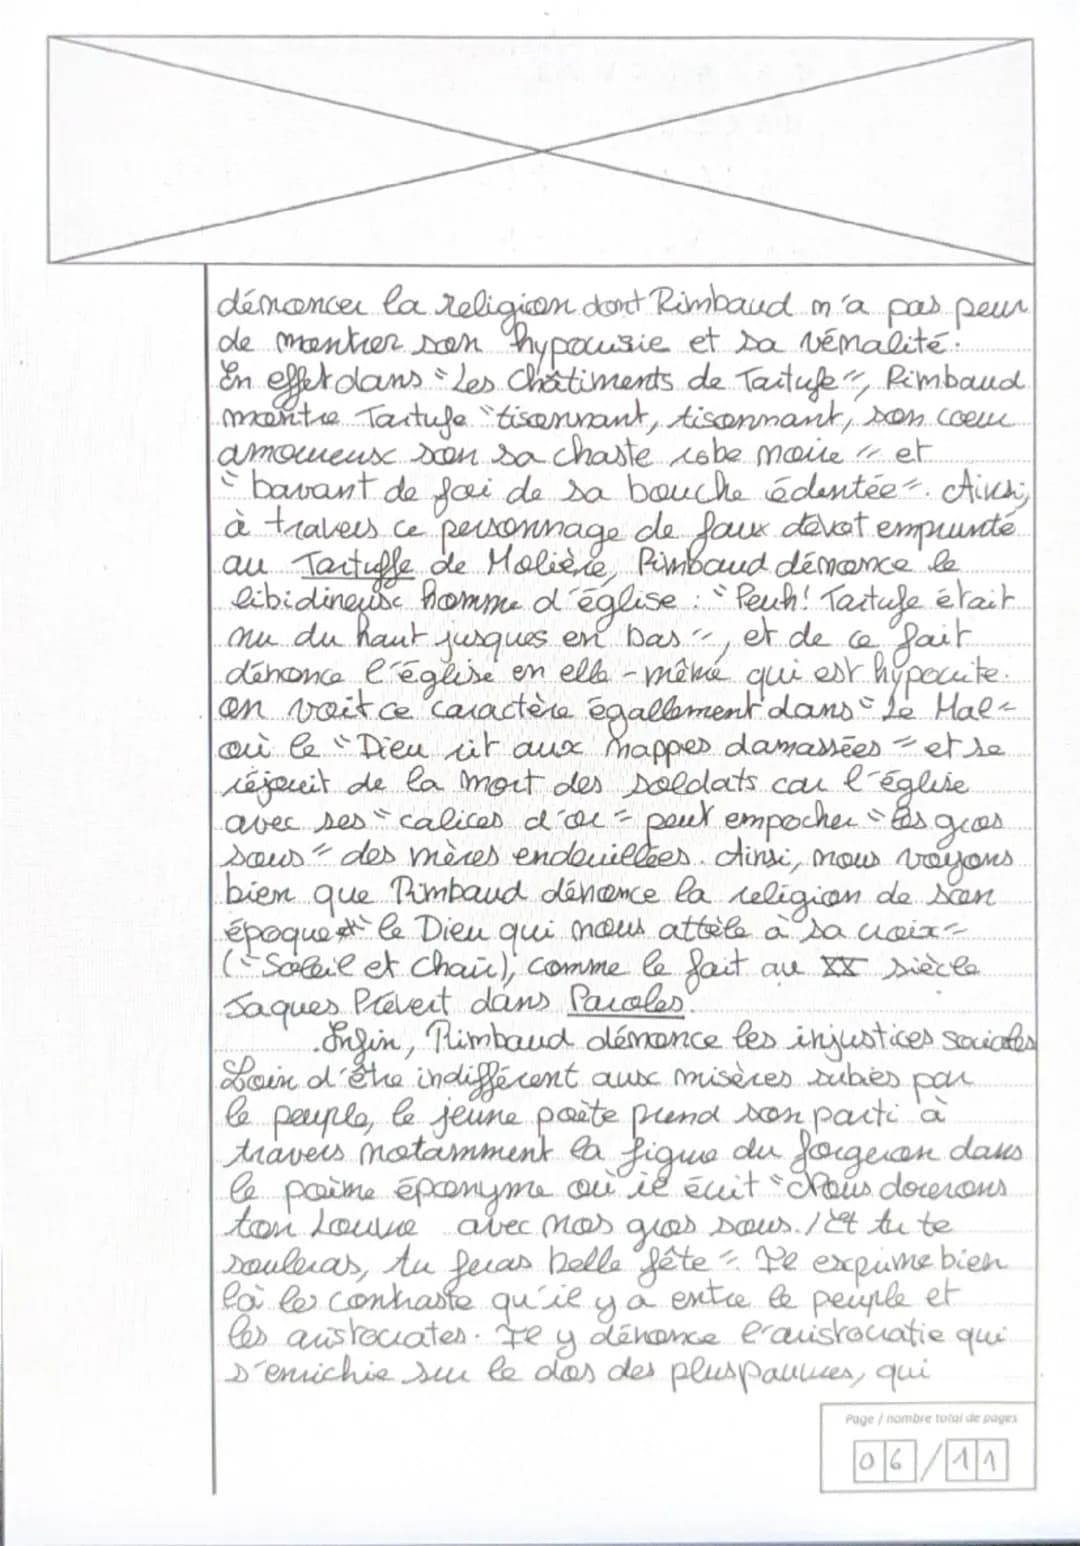 dénoncer la religion dont Rimbaud n'a pas peur
de montrer son hypocrisie et sa vénalité.
En effet dans "Les Châtiments de Tartufe", Rimbaud
montre Tartufe "tisonnant, tisonnant, son coeur
amoureux son sa chaste robe noire" et
"bavant de foi de sa bouche édentée". Ainsi,
à travers ce personnage de faux dévot emprunté
au Tartuffe de Molière, Rimbaud dénonce le
libidineux homme d'église : "Peuh! Tartufe était
nu du haut jusques en bas", et de ce fait
dénonce l'église en elle-même qui est hypocrite.
on voit ce caractère égallement dans "Le Mal"
où le "Dieu rit aux nappes damassées" et se
réjouit de la mort des soldats car l'église
avec ses "calices d'or" peut empocher "les gros
sous" des mères endeuillées. Ainsi, nous voyons
bien que Rimbaud dénonce la religion de son
époque et "le Dieu qui nous attèle à sa croix"
("Soleil et Chair), comme le fait au XX siècle
Jaques Prévert dans Paroles.
Enfin, Rimbaud dénonce les injustices sociales
Loin d'être indifférent aux misères subies par
le peuple, le jeune poète prend son parti à
travers notamment la figure du forgeron dans
le poème éponyme où il écrit "Nous dorerons
ton Louvre avec nos gros sous. / Et tu te
souleras, tu feras belle fête". Il exprime bien
là les contraste qu'il y a entre le peuple et
les aristocrates. Il y dénonce l'aristocratie qui
s'enrichie sur le dos des plus pauvres, qui
Page / nombre total de pages
06/11